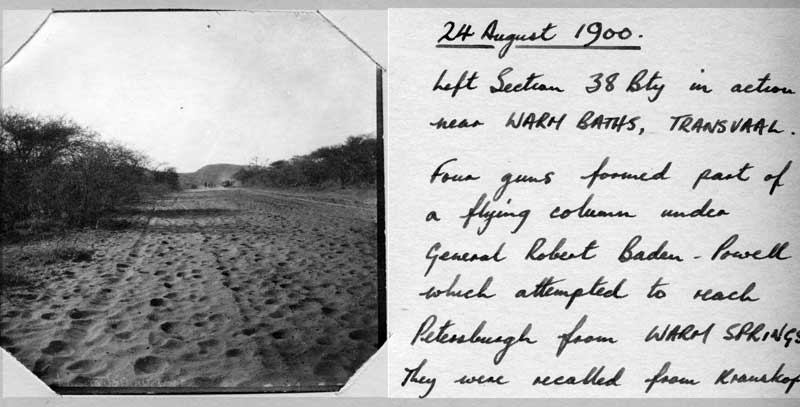 24 August 1900.
Left Section 38 Bty in action
near WARM BATHS, TRANSVAAL.
Four guns formed part of
a flying column under
General Robert Baden-Powell
which attempted to reach
Petersburgh from WARM SPRINGS
They were recalled from Kranskop